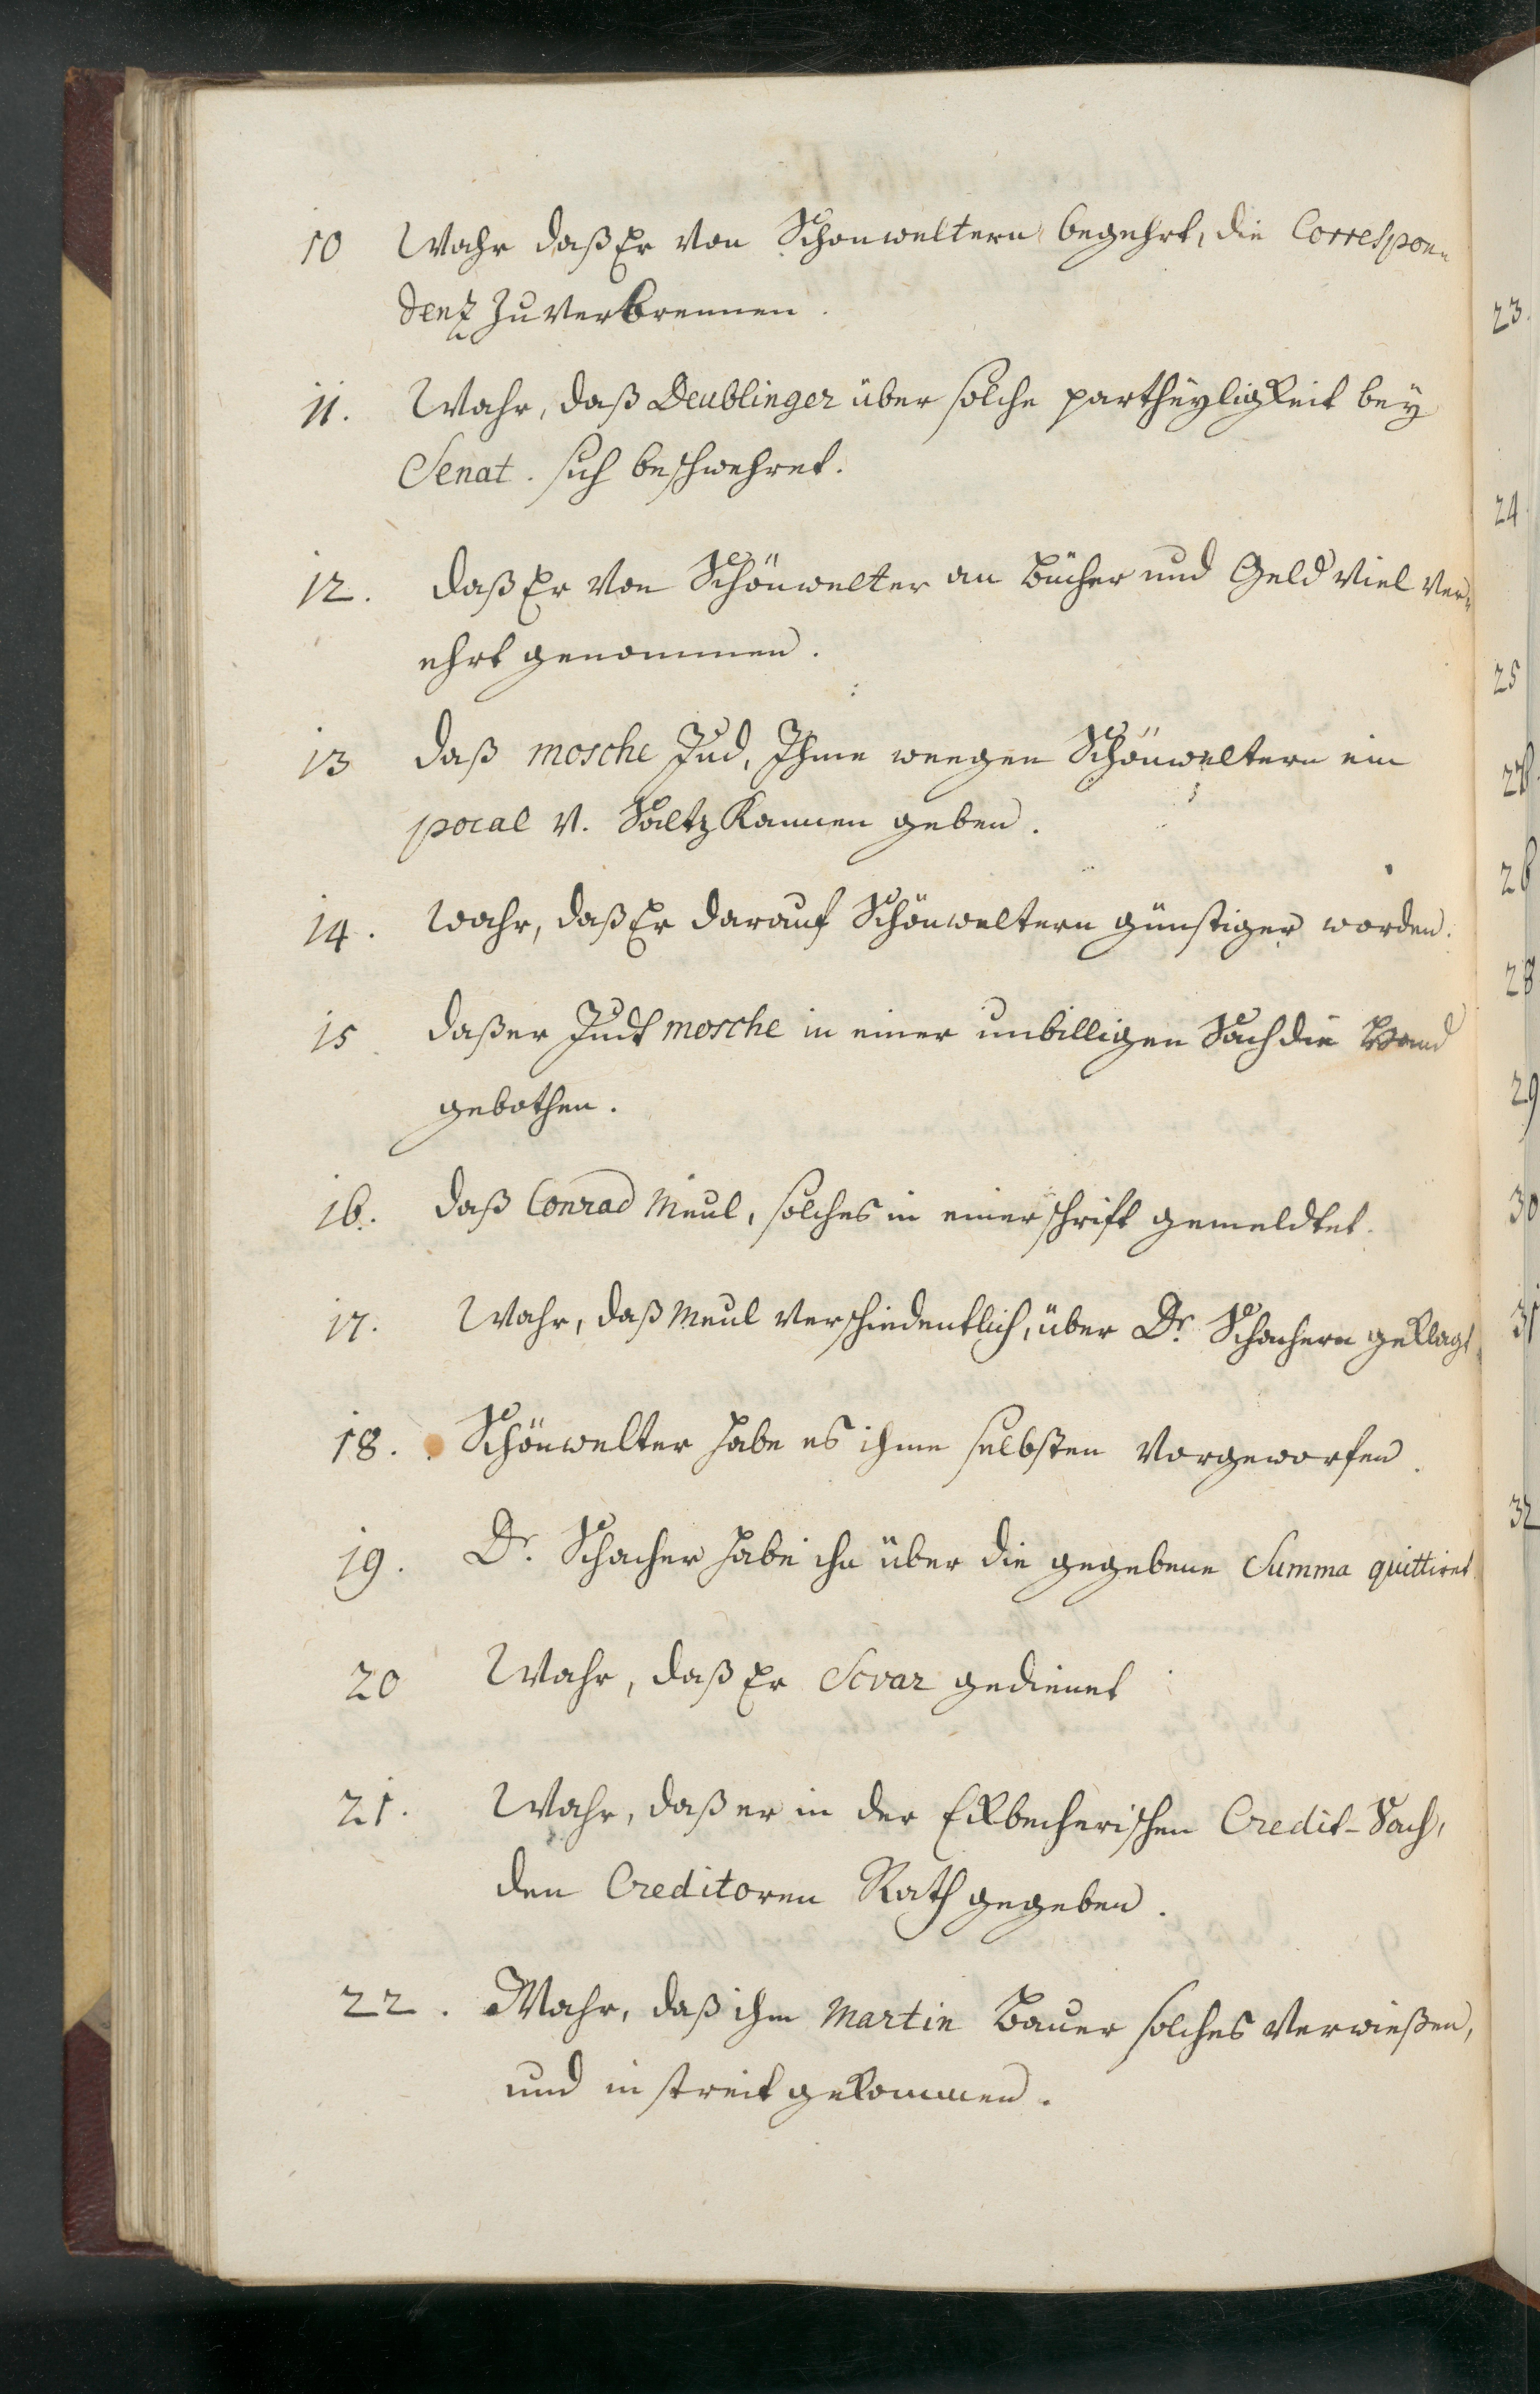 10 Wahr daß Er von Schonweltern begehrt, die Correspon-
denz zu verbrennen.
11. Wahr, daß Deublinger über solche partheyligkeit bey
Senat. sich beschwehret.
12. daß Er von Schönwelter an Bücher und Geld viel ver-
ehrt genommen.
13 daß mosche Jud, Ihme wegen Schönweltern ein
pocal v. Saltz Kannen geben.
14. Wahr, daß Er darauf Schönweltern günstiger worden.
15. daß er Judt mosche in einer unbilligen Sach die Hand
gebothen.
16. daß Conrad Meul, solches in einer schrift gemeldtet.
17. Wahr, daß Meul verschiedentlich, über Dr. Schachern geklagt
18. Schönwelter habe es ihme selbsten vorgeworfen.
19. Dr. Schacher habe ihn über die gegebene Summa quittiret.
20 Wahr, daß Er gedienet
21. Wahr, daß er in der Credit-Sach,
den Creditoren Rath gegeben.
22. Wahr, daß ihm Martin Bauer solches verwießen,
und in streit gekommen.
23.
24.
25
26
28
29
30
31
32